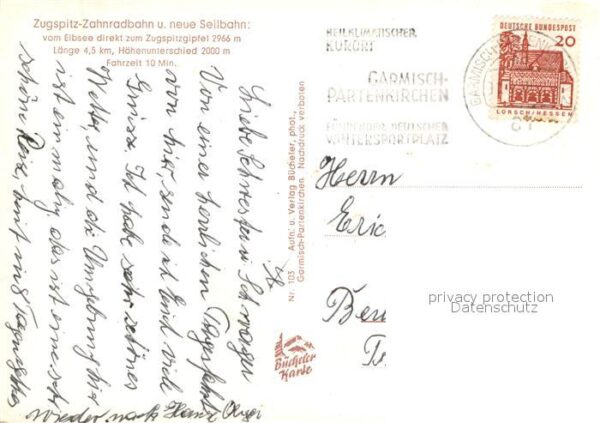 Zugspitz-Zahnradbahn u. neue Seilbahn:
vom Eibsee direkt zum Zugspitzgipfel 2966 m
Länge 4,5 km, Höhenunterschied 2000 m
Fahrzeit 10 Min.
Liebe Schwester u. Schwager
Von einer herrlichen Tagesfahrt
von hier, sende ich Euch viel
Grüsse. Ich habe sehr schönes
Wetter, und die Umgebung hier
ist einmalig. das ist eine sehr
schöne Reise, mit
wieder nach
Nr. 103 Aufn. u. Verlag Bücheler, phot.,
Garmisch-Partenkirchen Nachdruck verboten
Bücheler
Karte
HEILKLIMATISCHER
KURORT
GARMISCH-
PARTENKIRCHEN
FÜHRENDER DEUTSCHER
WINTERSPORTPLATZ
GARMISCH-
DEUTSCHE BUNDESPOST
20
LORSCH/HESSEN
Herrn
Eric
Ben
privacy protection
Datenschutz